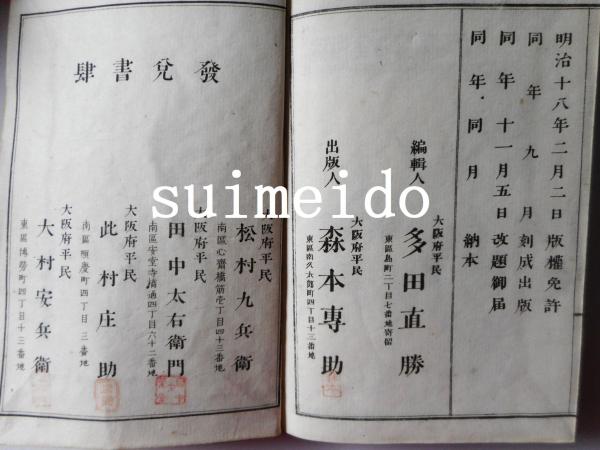 明治十八年二月二日版權免許
同年九月刻成出版
同年十一月五日改題御届
同年·同月納本
大阪府平民
編輯人 多田直勝
東區島町二丁目七番地寄留
大阪府平民
出版人 森本專助
東區南久太郎町四丁目十三番地
發兌書肆
大阪府平民
松村九兵衛
南區心齋橋筋壱丁目四十三番地
大阪府平民
田中太右衛門
南區安堂寺橋通四丁目六十二番地
大阪府平民
此村庄助
南區順慶町四丁目三番地
大阪府平民
大村安兵衛
東區博勞町四丁目十三番地
suimeido